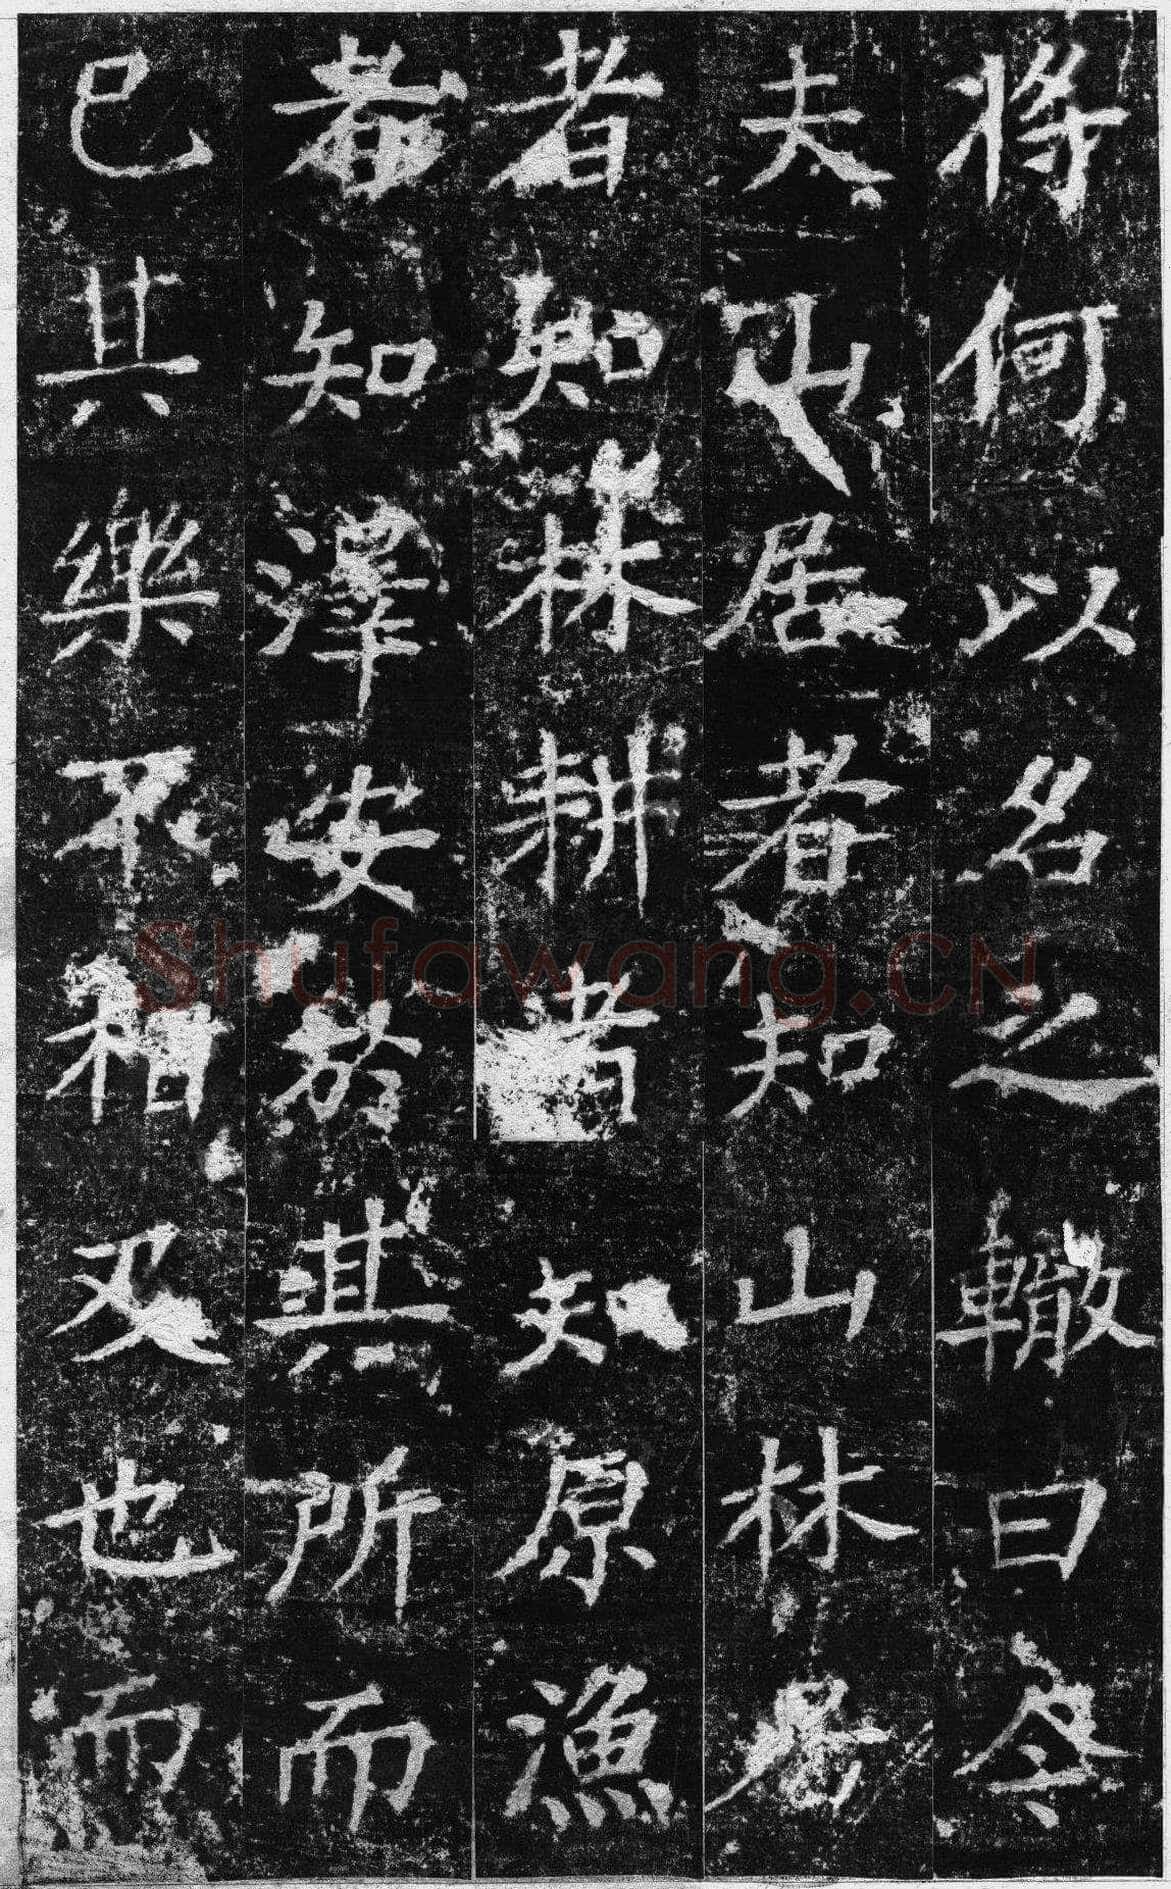 將何以名之轍曰今
夫山居者知山林居
者知林耕者知原漁
者知澤安於其所而
已其樂不相及也而
Shufawang.CN